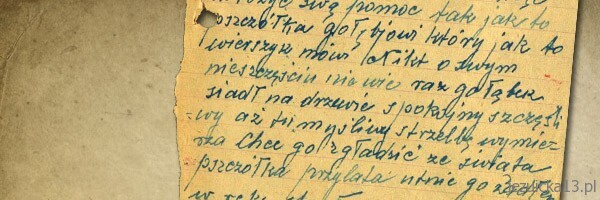 swą pomoc tak jak to
pszczółka gołębiowi który jak to
wierszyk mówi Nikt o swym
nieszczęściu nie wie raz gołąbek
siadł na drzewie spokojny szczęśli
wy aż tu myśliwy strzelbę wymie
rza chce go zgładzić ze świata
pszczółka przylata utnie go
w
13.pl